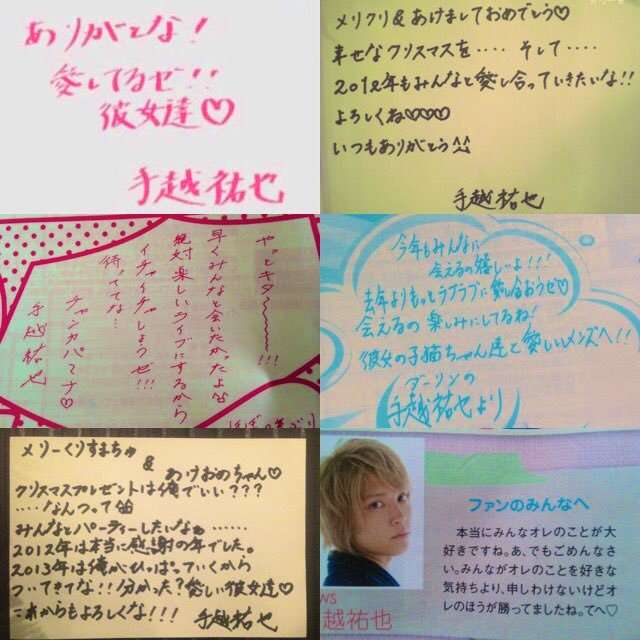 ありがとな!
愛してるぜ!!
彼女達♡
手越祐也
メリクリ&あけましておめでとう♡
幸せなクリスマスを‥‥ そして‥‥
2012年もみんなと愛し合っていきたいな!!
よろしくね♡♡♡
いつもありがとう^^
手越祐也
やっとキター〜〜〜!!!
早くみんなと会いたかったよ
絶対楽しいライブにするから
イチャイチャしようぜ!!!
待っててな…
チャンカパーナ♡
手越祐也
今年もみんなに
会えるの嬉しいよ!!!
去年よりもっとラブラブに愛し合おうぜ♡
会えるの楽しみにしてるね!
彼女の子猫ちゃん達と愛しいメンズへ!!
ダーリンの
手越祐也より
メリーくりすまちゅ
&
あけおめちゃん♡
クリスマスプレゼントは俺でいい???
‥‥なんつって
みんなとパーティーしたいなぁ‥‥‥
2012年は本当に感謝の年でした。
2013年は俺がひっぱっていくから
ついてきてな!!分かった?愛しい彼女達♡
これからもよろしくな!!!
手越祐也
ファンのみんなへ
本当にみんなオレのことが大
好きですね。あ、でもごめんなさ
い。みんながオレのことを好きな
気持ちより、申しわけないけどオ
レのほうが勝ってましたね。てへ♡
WS
越祐也